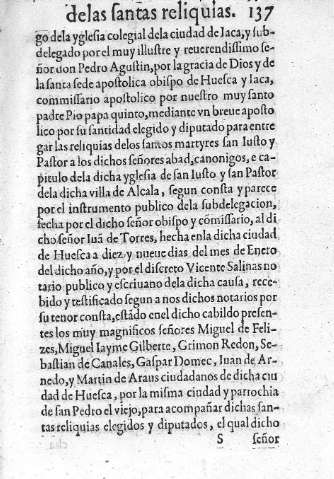 delas santas reliquias. 137
go dela yglesia colegial dela ciudad de Iaca, y sub-
delegado por el muy illustre y reuerendissimo se-
ñor don Pedro Agustin, por la gracia de Dios y de
la santa sede apostolica obispo de Huesca y Iaca,
commissario apostolico por nuestro muy santo
padre Pio papa quinto, mediante vn breue aposto
lico por su santidad elegido y diputado para entre
gar las reliquias delos santos martyres san Iusto y
Pastor a los dichos señores abad, canonigos, e ca-
pitulo dela dicha yglesia de san Iusto y san Pastor
dela dicha villa de Alcala, segun consta y parece
por el instrumento publico dela subdelegacion,
fecha por el dicho señor obispo y cōmissario, al di
cho señor Iuā de Torres, hecha enla dicha ciudad
de Huesca a diez y nueue dias del mes de Enero
del dicho año, y por el discreto Vicente Salinas no
tario publico y escriuano dela dicha causa, rece-
bido y testificado segun a nos dichos notarios por
su tenor consta, estādo enel dicho cabildo presen-
tes los muy magnificos señores Miguel de Feli-
zes, Miguel Iayme Gilberte, Grimon Redon, Se-
bastian de Canales, Gaspar Domec, Iuan de Ar-
nedo, y Martin de Araus ciudadanos de dicha ciu
dad de Huesca, por la misma ciudad y parrochia
de san Pedro el viejo, para acompañar dichas san-
tas reliquias elegidos y diputados, el qual dicho
S señor